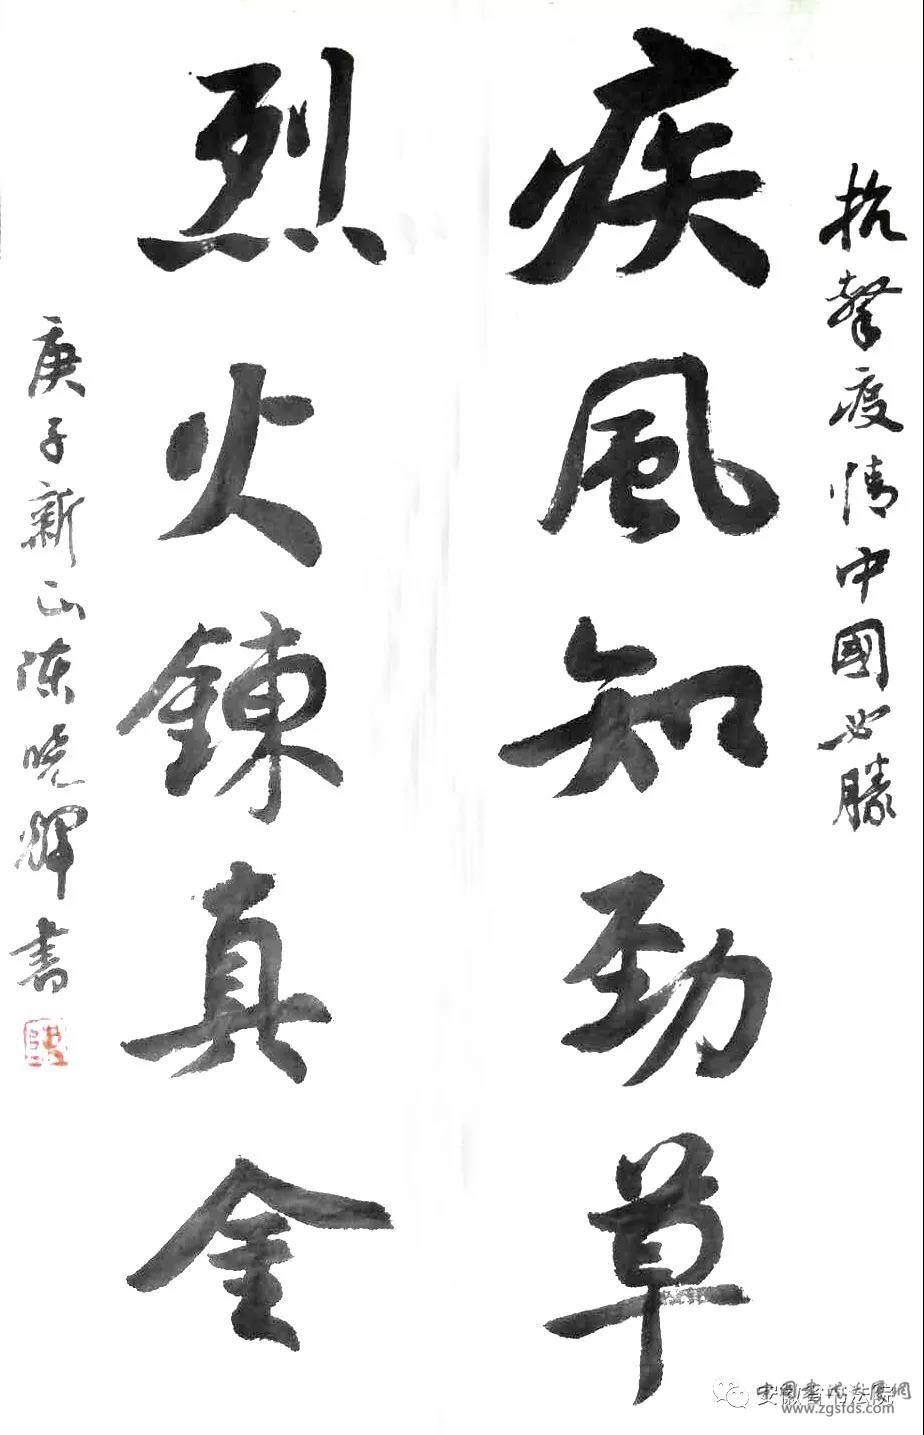 抗擊疫情中國必勝
疾風知勁草
烈火鍊真金
庚子新正陈晓輝書
安徽省书法院
www.zgsfds.com